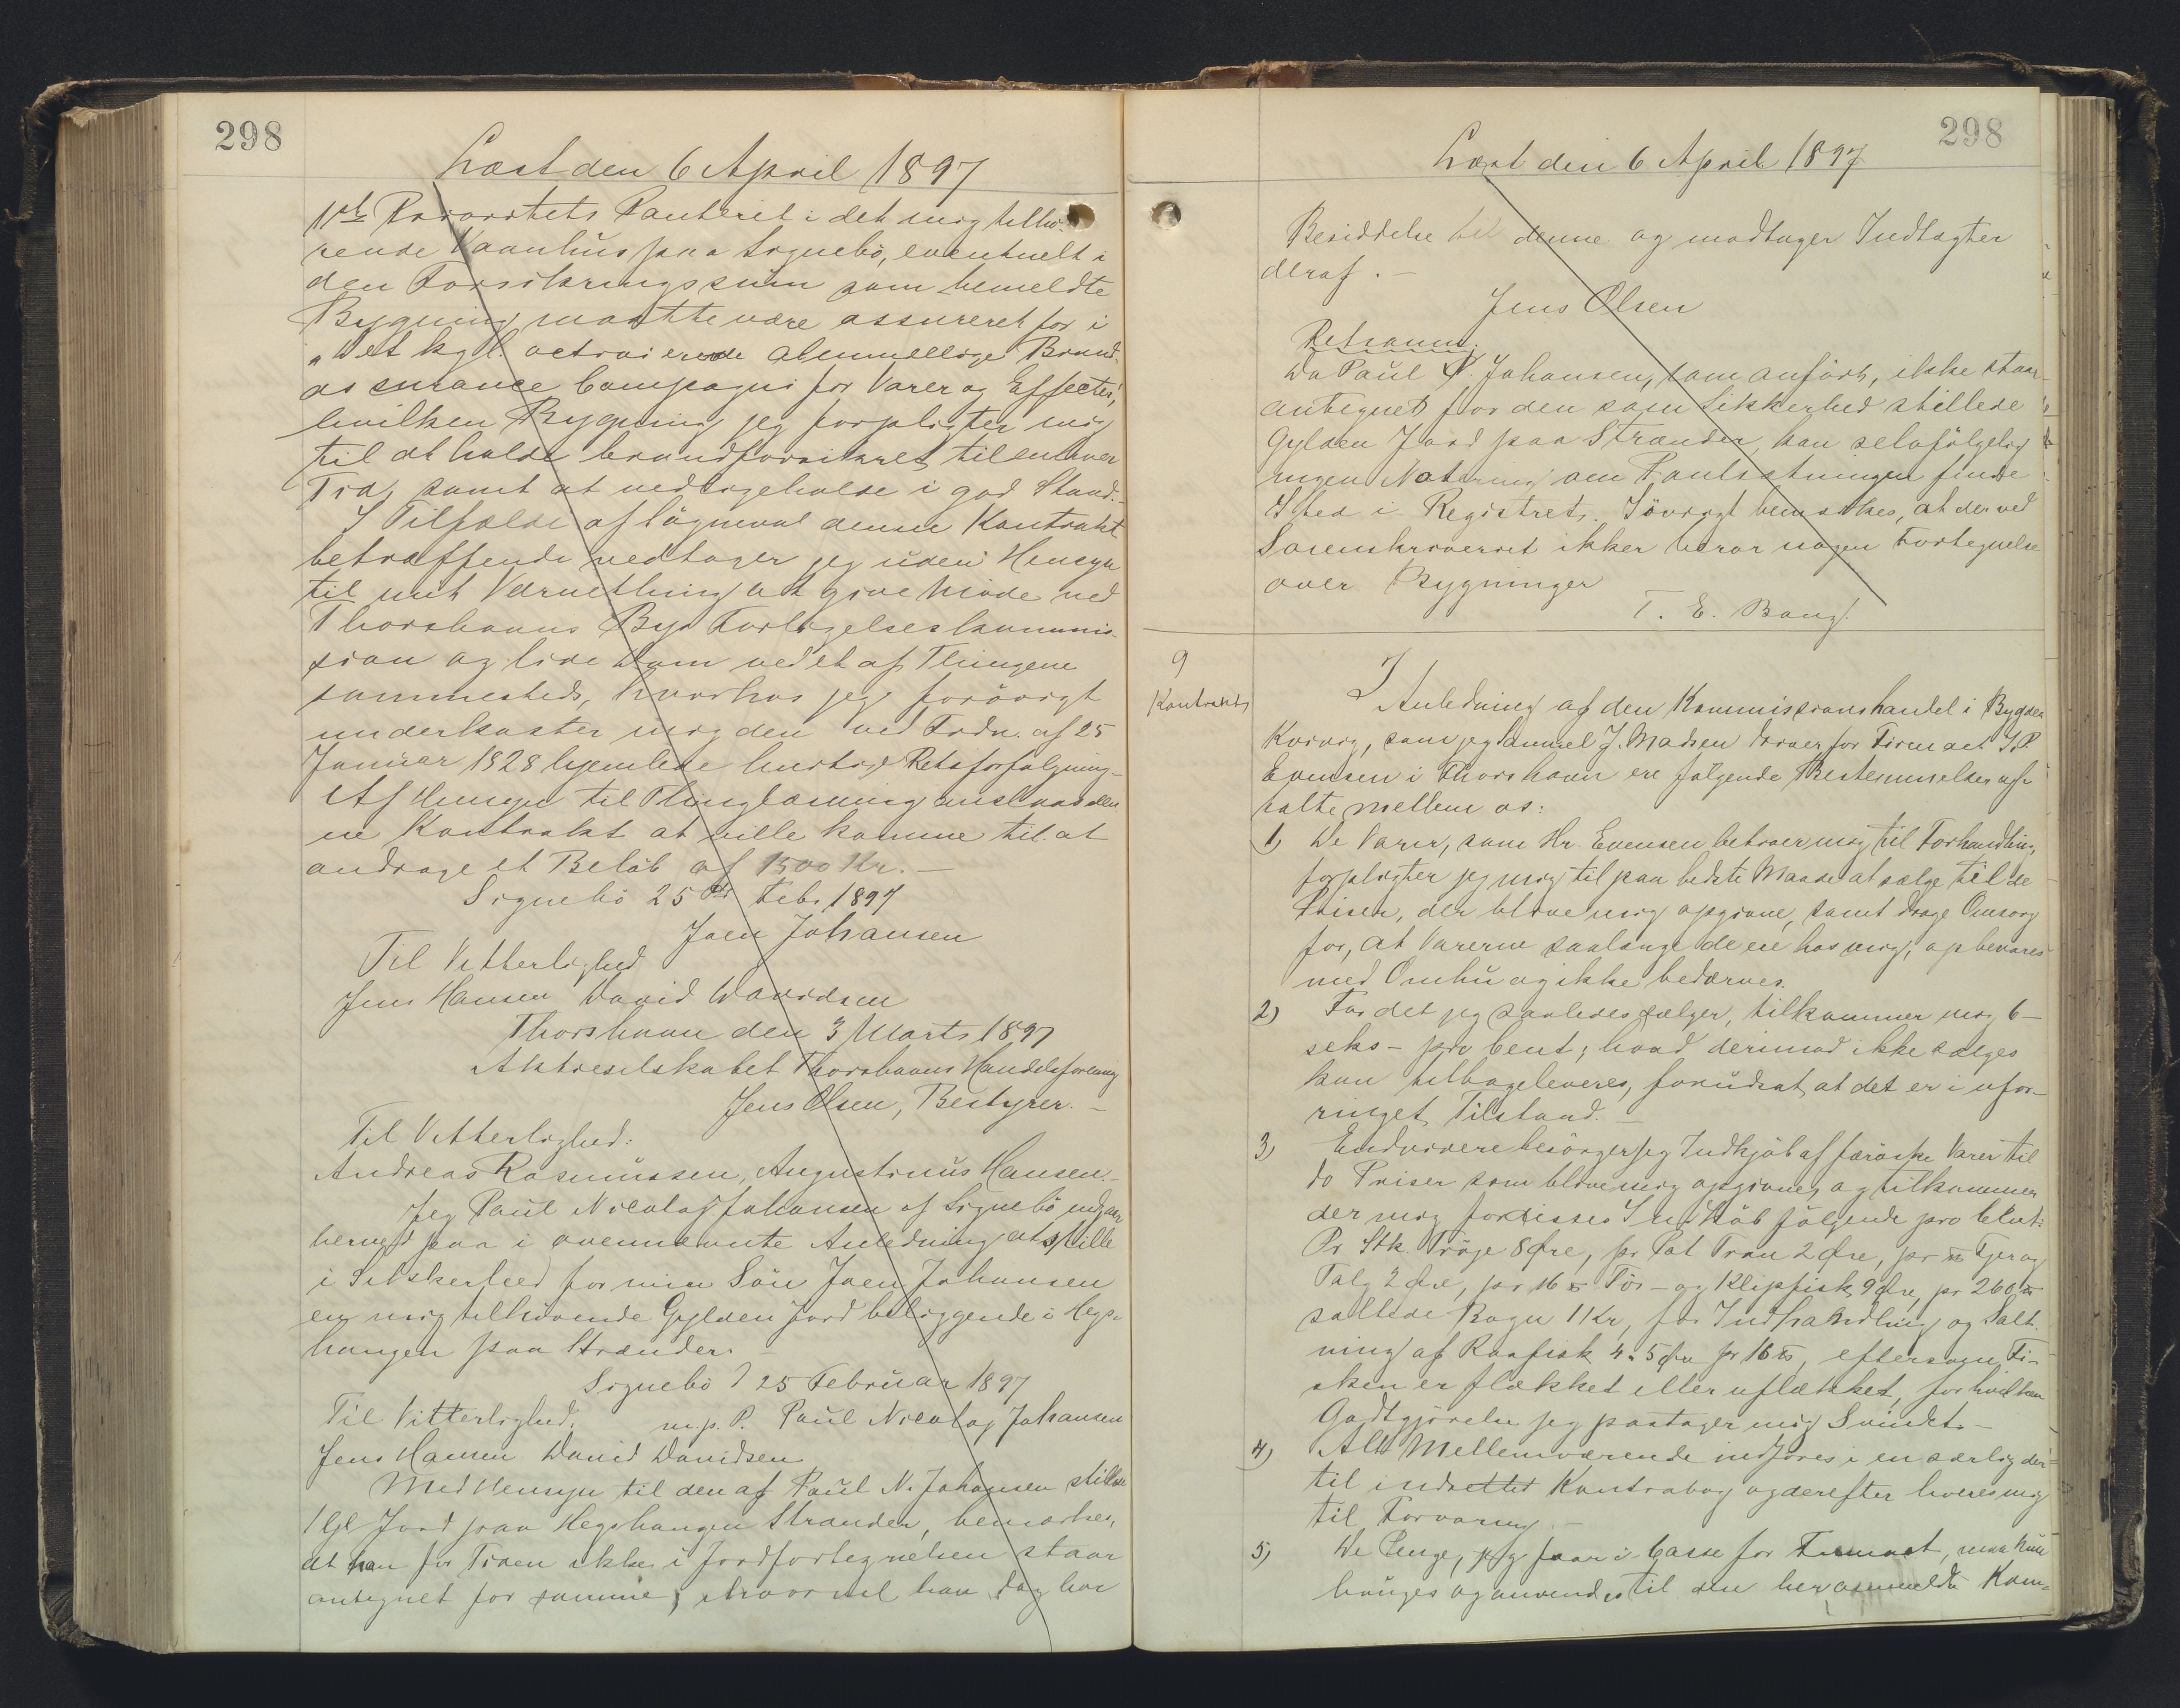 298
Læst den 6 April 1897
1ste Prioritets Panteret i det mig tilhø-
rende Vaanhus paa Signebø, eventuelt i
den Forsikringssum som bemeldte
Bygning maatte være assureret for i
"Det kgl. octroierede almindelige Brand-
assurance Compagni for Varer og Effecter",
hvilken Bygning jeg forpligter mig
til at holde brandforsikret til enhver
Tid, samt at vedligeholde i god Stand.-
I Tilfælde af Søgnemaal denne Kontrakt
betræffende vedtager jeg uden Hensyn
til mit Værnething at give Møde ved
Thorshavns Byes Forligelseskommis-
sion og lide Dom ved et af Thingene
sammesteds, hvorhos jeg forøvrigt
underkaster mig den ved Frdn. af 25
Januar 1828 hjemlede hurtige Retsforfølgning.-
Af Hensyn til Thinglæsning anslaaes den-
ne Kontrakt at ville komme til at
andrage et Beløb af 1500 Kr.-
Signebø 25de Feb. 1897
Joen Johansen
Til Vitterlighed
Jens Hansen David Davidsen
Thorshavn den 3 Marts 1897
Aktieselskabet Thorshavns Handelsforening
Jens Olsen, Bestyrer.-
Til Vitterlighed:
Andreas Rasmussen, Augustinus Hansen.-
Jeg Paul Nicolaj Johansen af Signebø indgaar
herved paa i ovennævnte Anledning at stille
i Sikkerhed for min Søn Joen Johansen
en mig tilhørende Gylden Jord beliggende i Hegs-
haugen paa Strænder.-
Signebø d 25 Februar 1897
Til Vitterlighed. m. p. P. Paul Nicolaj Johansen
Jens Hansen David Davidsen
Med Hensyn til den af Paul N. Johansen stillede
1 Gl Jord paa Hegshaugen Strænder, bemærkes,
at han for Tiden ikke i Jordfortegnelsen staar
antegnet for samme, ihvorvel han dog har
298
Læst den 6 April 1897
Besiddelse til denne og modtager Indtægter
deraf.-
Jens Olsen
Retsanm:
Da Paul N. Johansen, som anført, ikke staar
antegnet for den som Sikkerhed stillede
Gylden Jord paa Strænder, kan selvfølgelig
ingen Notering om Pantsætningen finde
Sted i Registret. Iøvrigt bemærkes, at der ved
Sorenskriveriet ikke beror nogen Fortegnelse
over Bygninger
T. E. Bang.
9
Kontrakt
I
Anledning af den Kommissionshandel i Bygden
Kvivig, som jeg Samuel J. Madsen driver for Firmaet I. P.
Evensen i Thorshavn ere følgende Bestemmelser af-
talte mellem os:
1) De Varer, som Hr. Evensen betroer mig til Forhandling,
forpligter jeg mig til paa bedste Maade at sælge til de
Priser, der blive mig opgivne, samt drage Omsorg
for, at Varerne saalænge de ere hos mig, opbevares
med Omhu og ikke bedærves.
2) For det jeg saaledes sælger, tilkommer mig 6-
seks- pro Cent; hvad derimod ikke sælges
kan tilbageleveres, forudsat at det er i ufor-
ringet Tilstand.-
3) Endvidere besørger jeg Indkjøb af færøske Varer til
de Priser som blive mig opgivne, og tilkommer
der mig for disses Indkøb følgende pro Cent:
Pr Stk. Trøje 8 Øre, pr Pot Tran 2 Øre, pr ℔ Fjer og
Talg 2 Øre, pr 16 ℔ Tør- og Klipfisk 9 Øre, pr 260 ℔
saltede Rogn 1 Kr, for Indhandling og Salt-
ning af Raafisk 4 à 5 Øre pr 16 ℔, eftersom Fi-
sken er flækket eller uflækket, for hvilken
Godtgjørelse jeg paatager mig Svindet.-
4) Alt Mellemværende indføres i en særlig der-
til indrettet Kontrabog og derefter leveres mig
til Forvaring.-
5) De Penge, jeg faar i Casse for Firmaet, maa kun
bruges og anvendes til den herommeldte Kom-